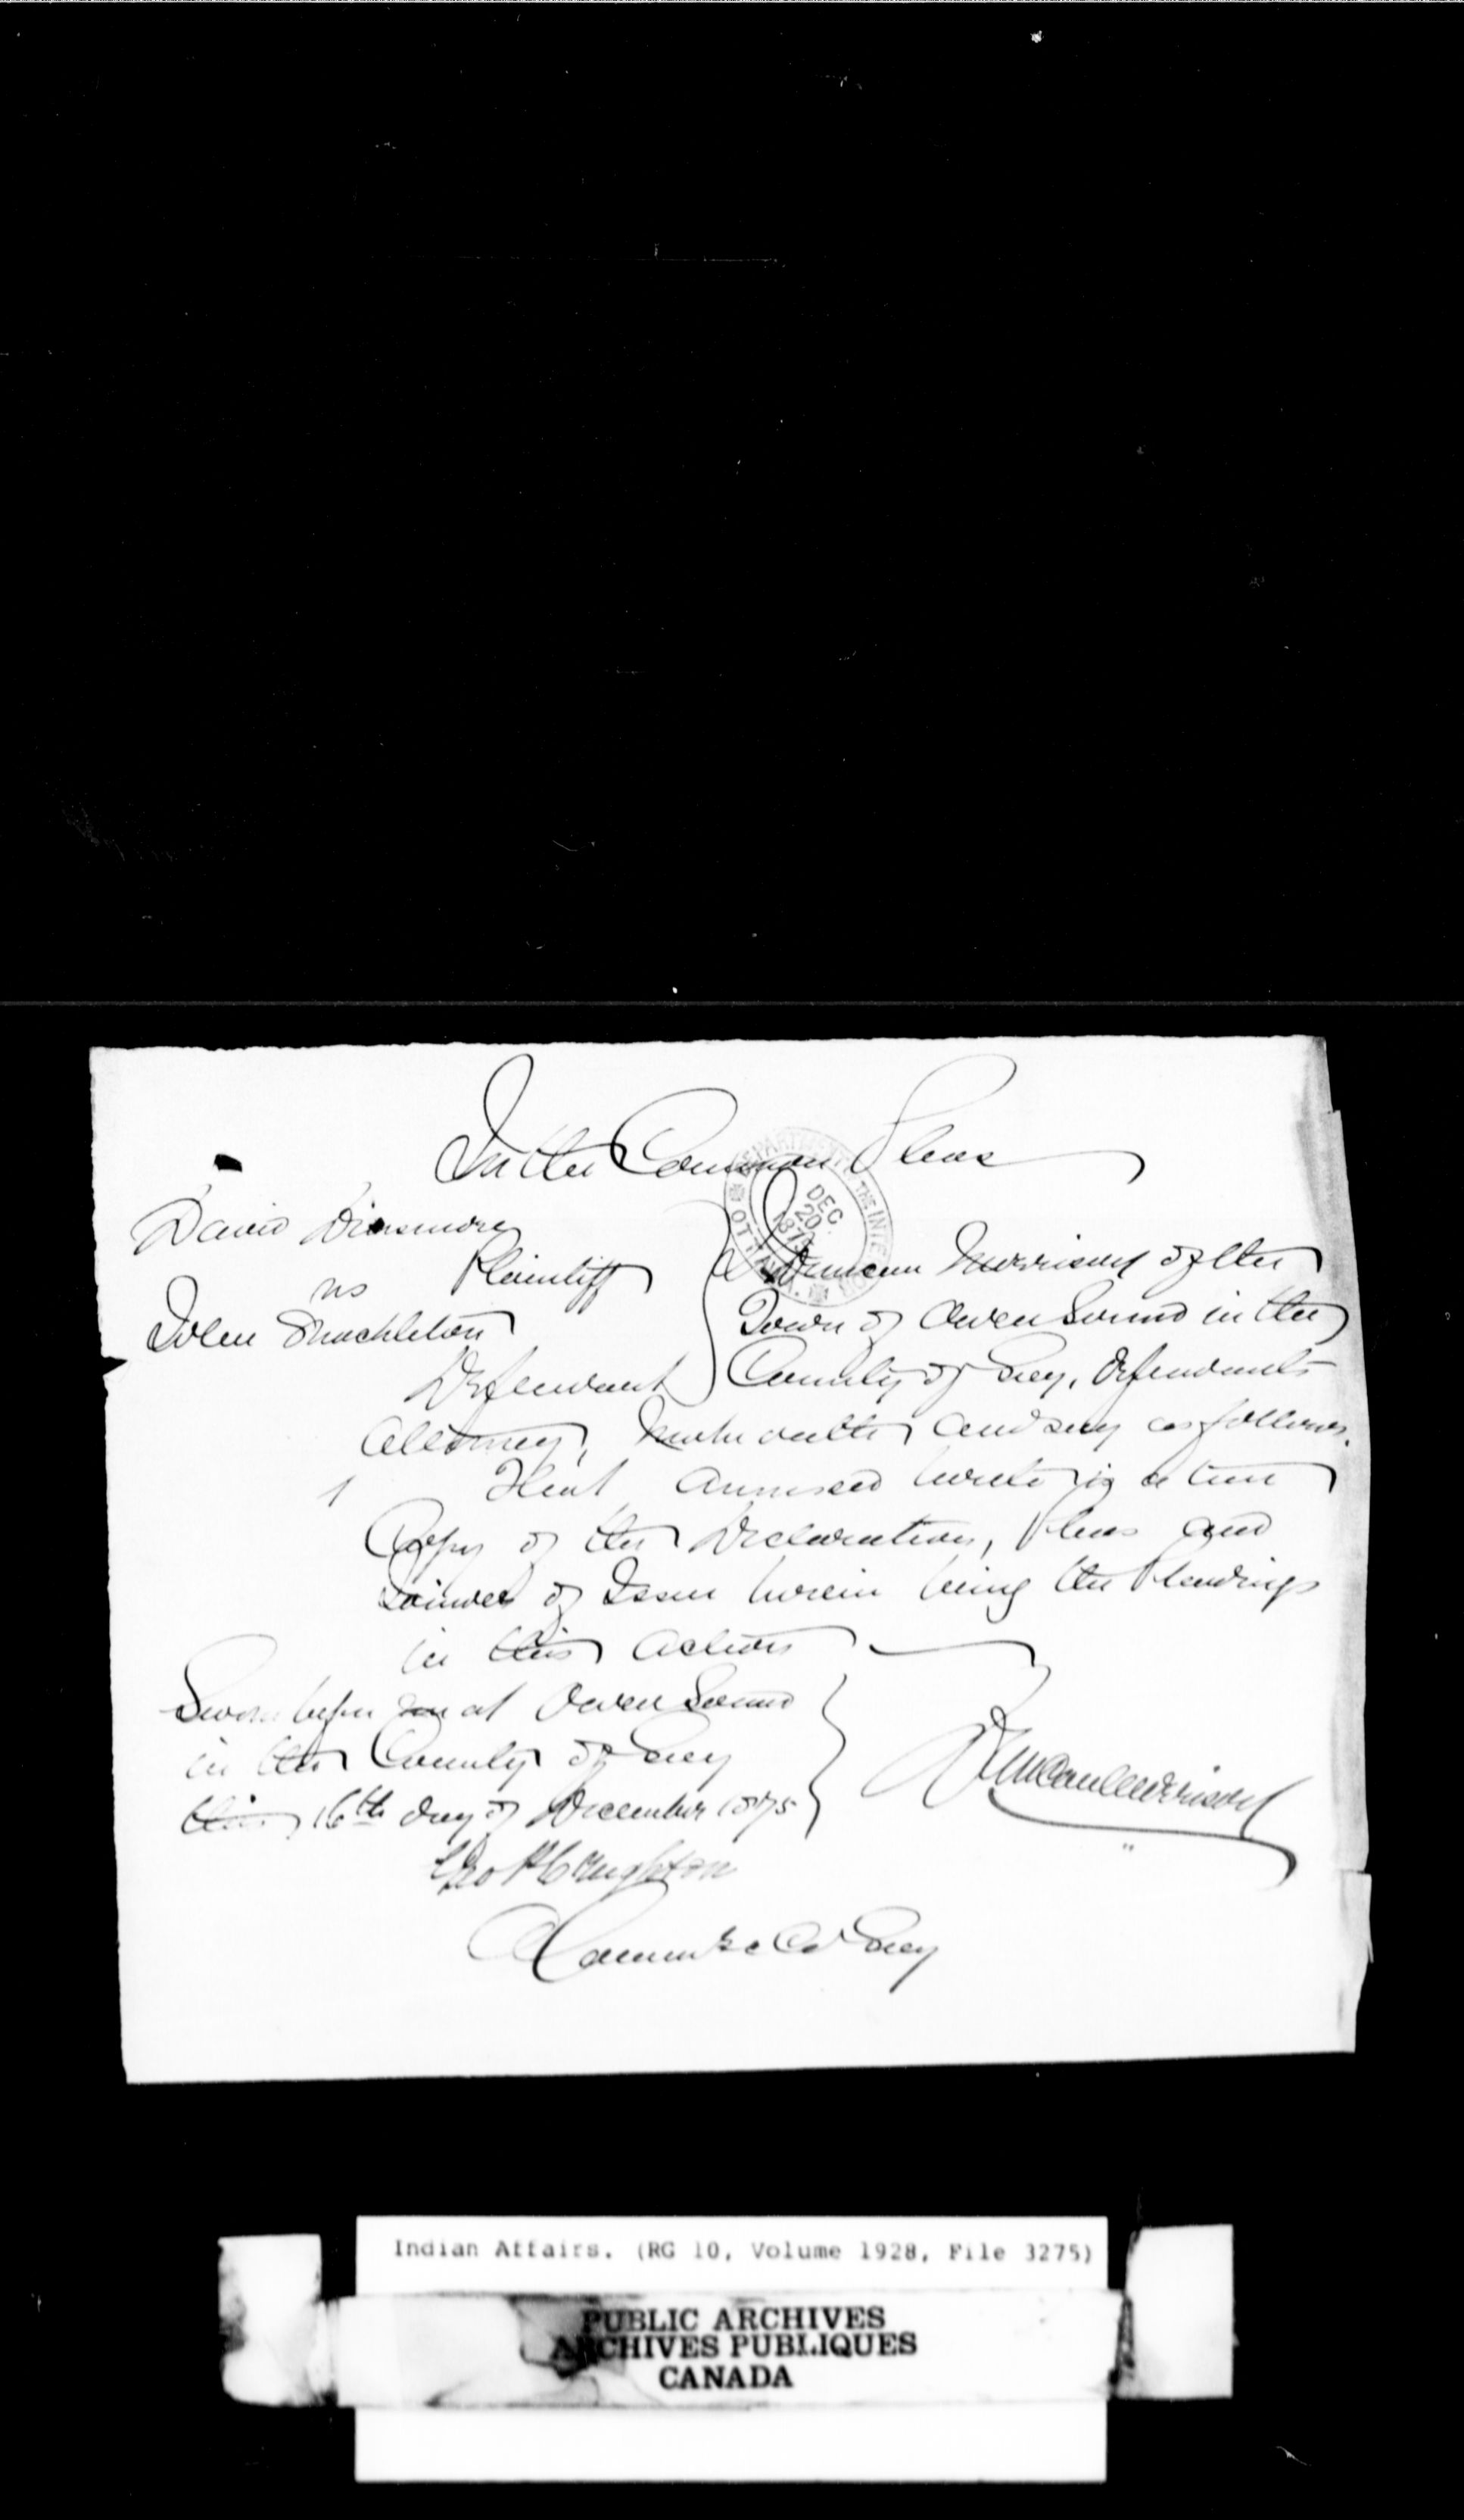 In the Common Pleas
DEPARTMENT OF THE INTERIOR
DEC
20
187
OTTAWA.
David Dinsmore
Plaintiff
vs
John Shackleton
Defendant
I Duncan Morrison of the
Town of Owen Sound in the
County of Grey, Defendants
Attorney, make oath and say as follows.
1 That annexed hereto is a true
Copy of the Declaration, Pleas and
Joinder of Issue herein being the Pleadings
in this action
Sworn before me at Owen Sound
in the County of Grey
this 16th day of December 1875
Duncan Morrison
Geo
Co Grey
Indian Affairs. (RG 10, Volume 1928, File 3275)
PUBLIC ARCHIVES
ARCHIVES PUBLIQUES
CANADA